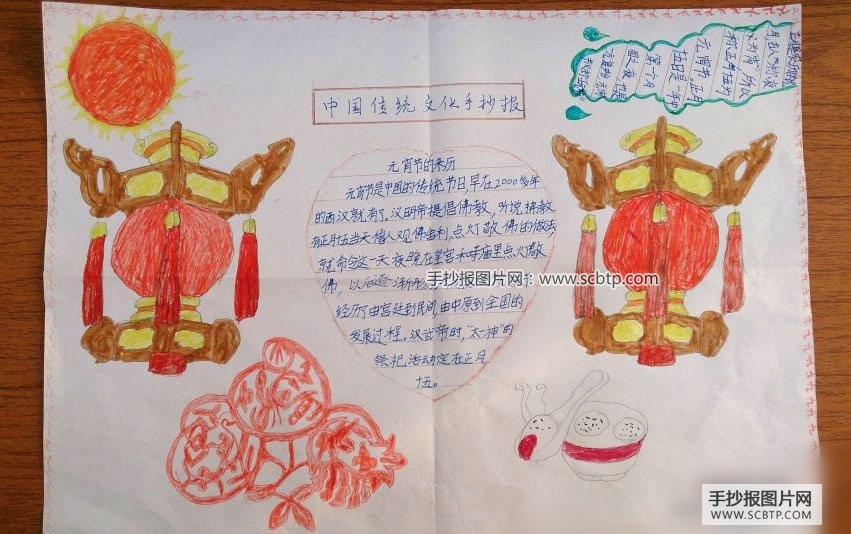 中国传统文化手抄报
为宵 所以
元宵节。正月
元宵节的来历
元宵节是中国的传统节日,早在2000多年
的西汉就有了.汉明帝提倡佛教,听说佛教
有正月五当天僧人观佛舍利,点灯敬佛的做法,
就命令这一天夜晚在皇宫和寺庙里点灯敬
佛,以后逐渐形
经历了由宫廷到民间,由中原到全国的
发展过程,汉武帝时"太一神"的
祭祀活动定在正月
十五。
手抄报图片网:www.scbtp.com
手抄报图片网
WWW.SCBTP.COM